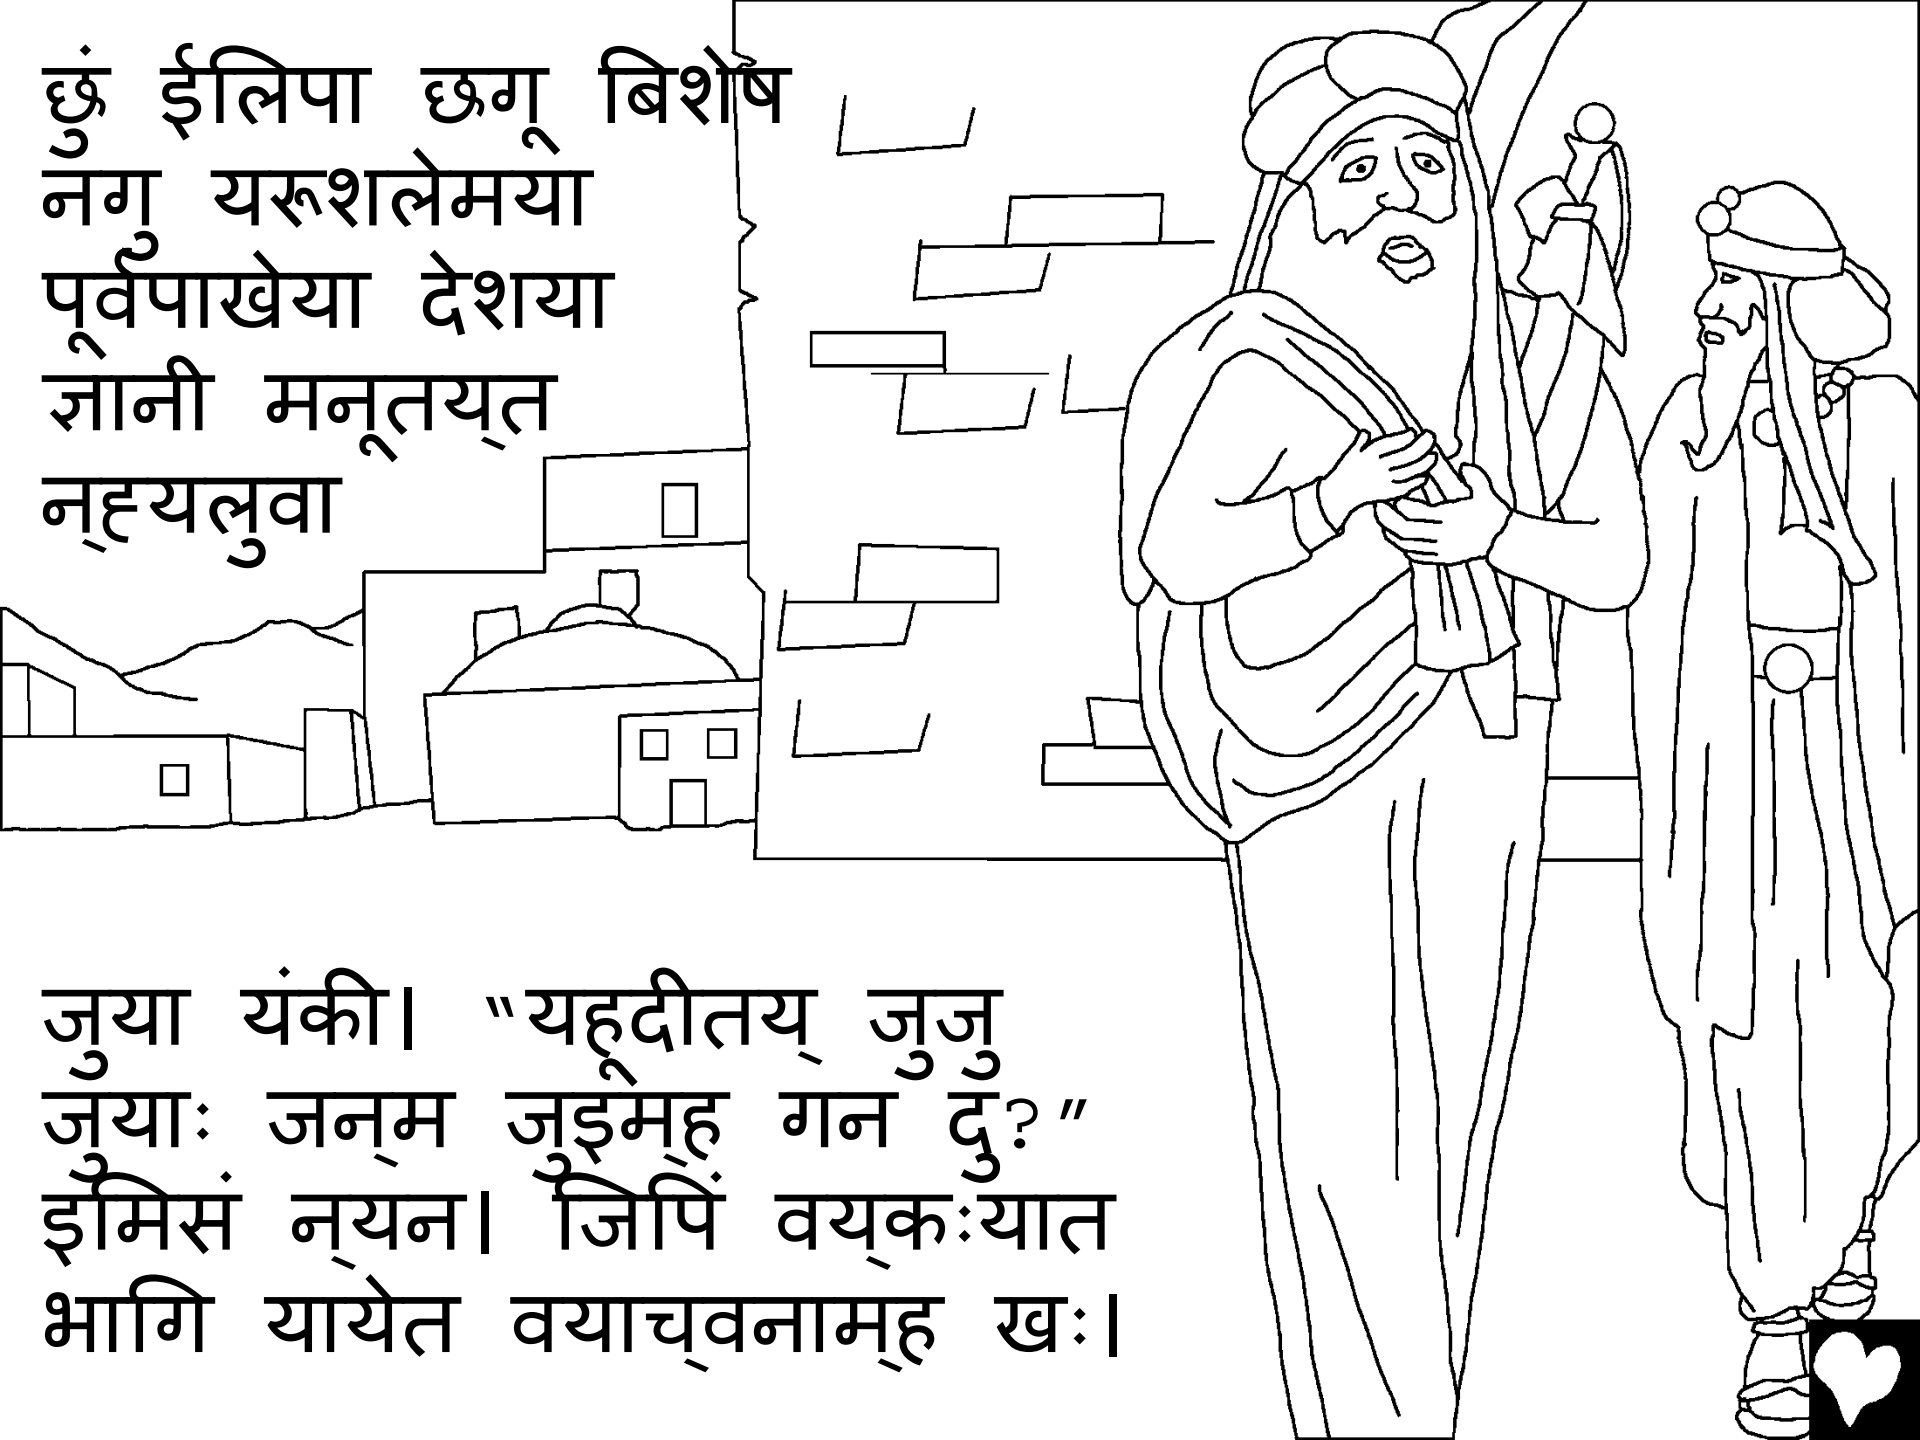 छुं ईलिपा छगू बिशेष
नगु यरूशलेमया
पूर्वपाखेया देशया
ज्ञानी मनूतय्‌त
न्ह्यलुवा
जुया यंकी। “यहूदीतय् जुजु
जुयाः जन्‌म जुइम्‌ह गन दु?”
इमिसं न्‌यन। जिपिं वय्‌कःयात
भागि यायेत वयाच्‌वनाम्‌ह खः।